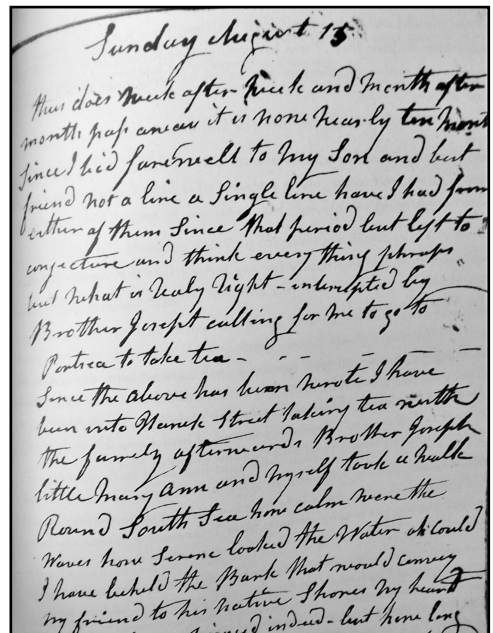 Sunday August 15
thus does week after week and month after
month pass away it is none nearly ten mont
since I bid farewell to my Son and best
friend not a line a Single line have I had from
either of them Since that period but left to
conjecture and think every thing phraps
but what is realy right - interupted by
Brother Joseph calling for me to go to
Portsea to take tea -
Since the above has been wrote I have
been into Street taking tea with
the family afterwards Brother Joseph
little Mary Ann and myself took a walk
Round South Sea how calm were the
Waves how Serene looked the Water oh could
I have beheld the Bark that would convey
my friend to his native Shores my heart
indeed - but how long